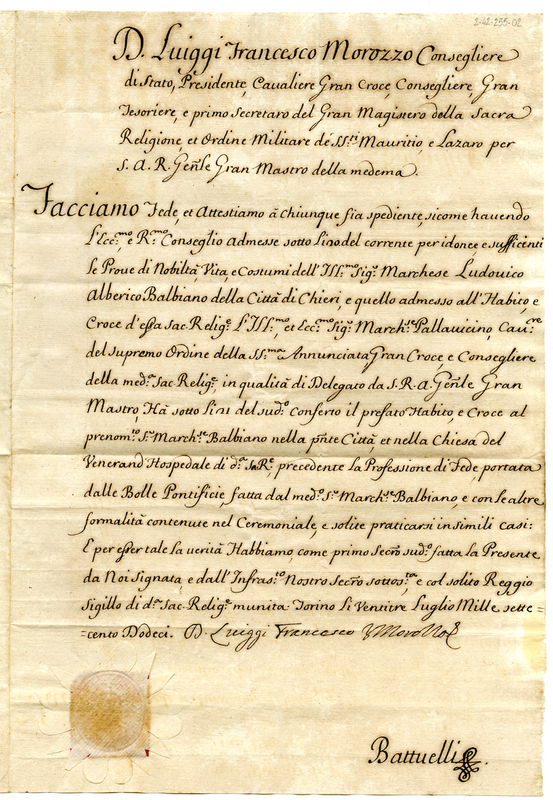 2-42-255-02
D. Luiggi Francesco Morozzo Consegliere
di Stato, Presidente, Cavaliere Gran Croce, Consegliere, Gran
Tesoriere, e primo Secretaro del Gran Magistero della Sacra
Religione, et Ordine Militare de SS.ti Mauritio, e Lazaro per
S. A. R. Gen̄le Gran Mastro della medema.
Facciamo Fede, et Attestiamo à chiunque sia spediente, sicome havendo
L'Ecc.mo, e R.mo Conseglio admesse sotto li 20 del corrente per idonee e sufficienti
le Prove di Nobiltà, Vita, e Costumi dell'Ill.mo Sig.r Marchese Ludovico
Alberico Balbiano della Città di Chieri, e quello admesso all'Habito, e
Croce d'essa Sac. Relig.e L'Ill.mo, et Ecc.mo Sig.r March.se Pallavicino, Cav.re
del supremo Ordine della SS.ma Annunciata Gran Croce, e Consegliere
della med.a Sac. Relig.e in qualità di Delegato da S. R. A. Gen̄le Gran
Mastro, Hà sotto li 21 del sud.o conferto il prefato Habito, e Croce al
prenom.to S.r March.se Balbiano nella pn̄te Città, et nella Chiesa del
Venerand Hospedale di d.a Re, precedente la Professione di Fede, portata
dalle Bolle Pontificie, fatta dal med.o S.r March.se Balbiano, e con le altre
formalità contenute nel Ceremoniale, e solite praticarsi in simili casi:
E per esser tale la verità Habbiamo, come primo Secro sud.o fatta la Presente
da Noi Signata, e dall'Infras.to Nostro Secro sottos.ta, e col solito Reggio
Sigillo di d.a Sac. Relig.e munita. Torino Li Ventitre Luglio Mille sette=
=cento Dodeci. D. Luiggi Francesco Morozzo
Battuelli